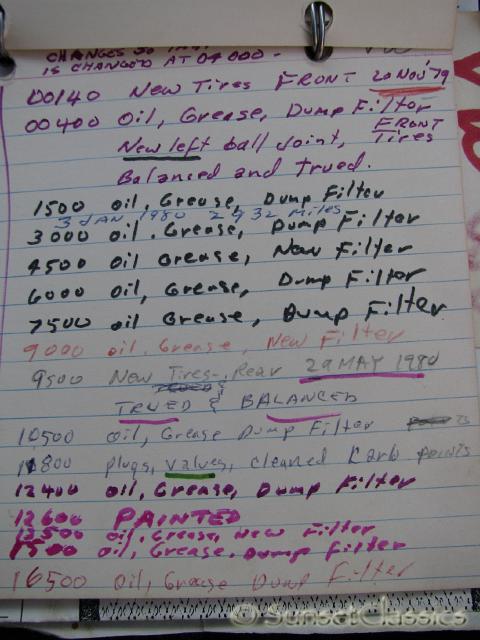 CHANGES SO THAT
IS CHANGED AT 04000-
00140 New Tires FRONT 20 NOV '79
00400 oil, Grease, Dump Filter
New left ball joint, FRONT Tires
Balanced and Trued.
1500 oil, Grease, Dump Filter
3 JAN 1980 2932 miles
3000 oil. Grease, Dump Filter
4500 oil Grease, New Filter
6000 oil, Grease, Dump Filter
7500 oil Grease, Dump Filter
9000 oil. Grease, New Filter
9500 New Tires-, Rear 29 MAY 1980
TRUED & BALANCED
10500 oil, Grease Dump Filter
11800 plugs, valves, cleaned Karb points
12400 oil, Grease, Dump Filter
12600 PAINTED
13500 oil, Grease, New Filter
1500 oil, Grease, Dump Filter
16500 oil, Grease Dump Filter
© SunsetClassics